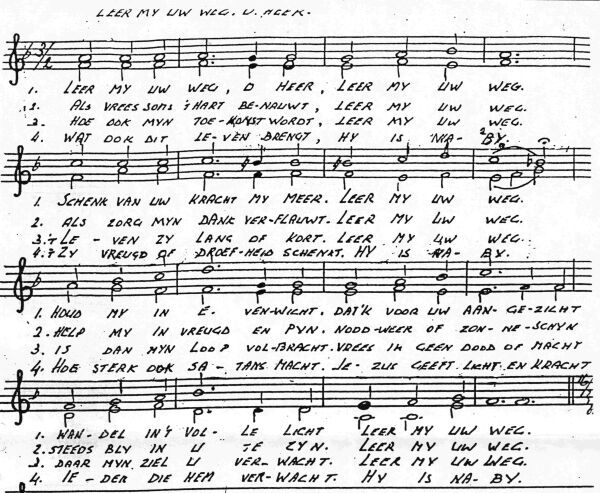 LEER MY UW WEG. O. HEER.
3/2
1. LEER MY UW WEG, O HEER, LEER MY UW WEG.
2. ALS VREES SOMS 'T HART BE-NAUWT, LEER MY UW WEG.
3. HOE OOK MYN TOE-KOMST WORDT, LEER MY UW WEG.
4. WAT OOK DIT LE-VEN BRENGT, HY IS NA-BY.
1. SCHENK VAN UW KRACHT MY MEER. LEER MY UW WEG.
2. ALS ZORG MYN DANK VER-FLAUWT. LEER MY UW WEG.
3. 'T LE-VEN ZY LANG OF KORT. LEER MY UW WEG.
4. 'T ZY VREUGD OF DROEF-HEID SCHENKT. HY IS NA-BY.
1. HOUD MY IN E-VEN-WICHT. DAT'K VOOR UW AAN-GE-ZICHT
2. HELP MY IN VREUGD EN PYN. NOOD-WEER OF ZON-NE-SCHYN
3. IS DAN MYN LOOP VOL-BRACHT. VREES IK GEEN DOOD OF MACHT
4. HOE STERK OOK SA-TANS MACHT. JE-ZUS GEEFT LICHT EN KRACHT
1. WAN-DEL IN 'T VOL-LE LICHT LEER MY UW WEG.
2. STEEDS BLY IN U TE ZYN. LEER MY UW WEG.
3. DAAR MYN ZIEL U VER-WACHT. LEER MY UW WEG.
4. IE-DER DIE HEM VER-WACHT. HY IS NA-BY.